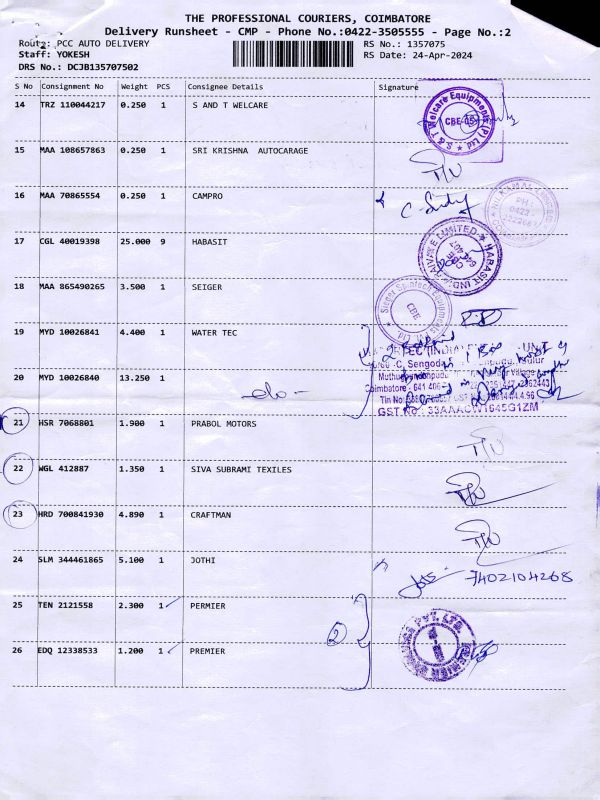 THE PROFESSIONAL COURIERS, COIMBATORE
Delivery Runsheet - CMP - Phone No.:0422-3505555 - Page No.:2
Route: PCC AUTO DELIVERY
RS No.: 1357075
Staff: YOKESH
RS Date: 24-Apr-2024
DRS No.: DCJB135707502
S No Consignment No Weight PCS Consignee Details Signature
14 TRZ 110044217 0.250 1 S AND T WELCARE
S & T Welcare Equipments (P) Ltd
CBE-05
15 MAA 108657863 0.250 1 SRI KRISHNA AUTOCARAGE
16 MAA 70865554 0.250 1 CAMPRO
PH:
0422
17 CGL 40019398 25.000 9 HABASIT
HABASIT INDIA PRIVATE LIMITED
CBE
641 407
18 MAA 865490265 3.500 1 SEIGER
CBE
19 MYD 10026841 4.400 1 WATER TEC
20 MYD 10026840 13.250 1
-do-
Coimbatore - 641 406
GST No : 33AAACW1645G1ZM
21 HSR 7068801 1.900 1 PRABOL MOTORS
22 WGL 412887 1.350 1 SIVA SUBRAMI TEXILES
23 HRD 700841930 4.890 1 CRAFTMAN
24 SLM 344461865 5.100 1 JOTHI
7402104268
25 TEN 2121558 2.300 1 PERMIER
2
26 EDQ 12338533 1.200 1 PREMIER